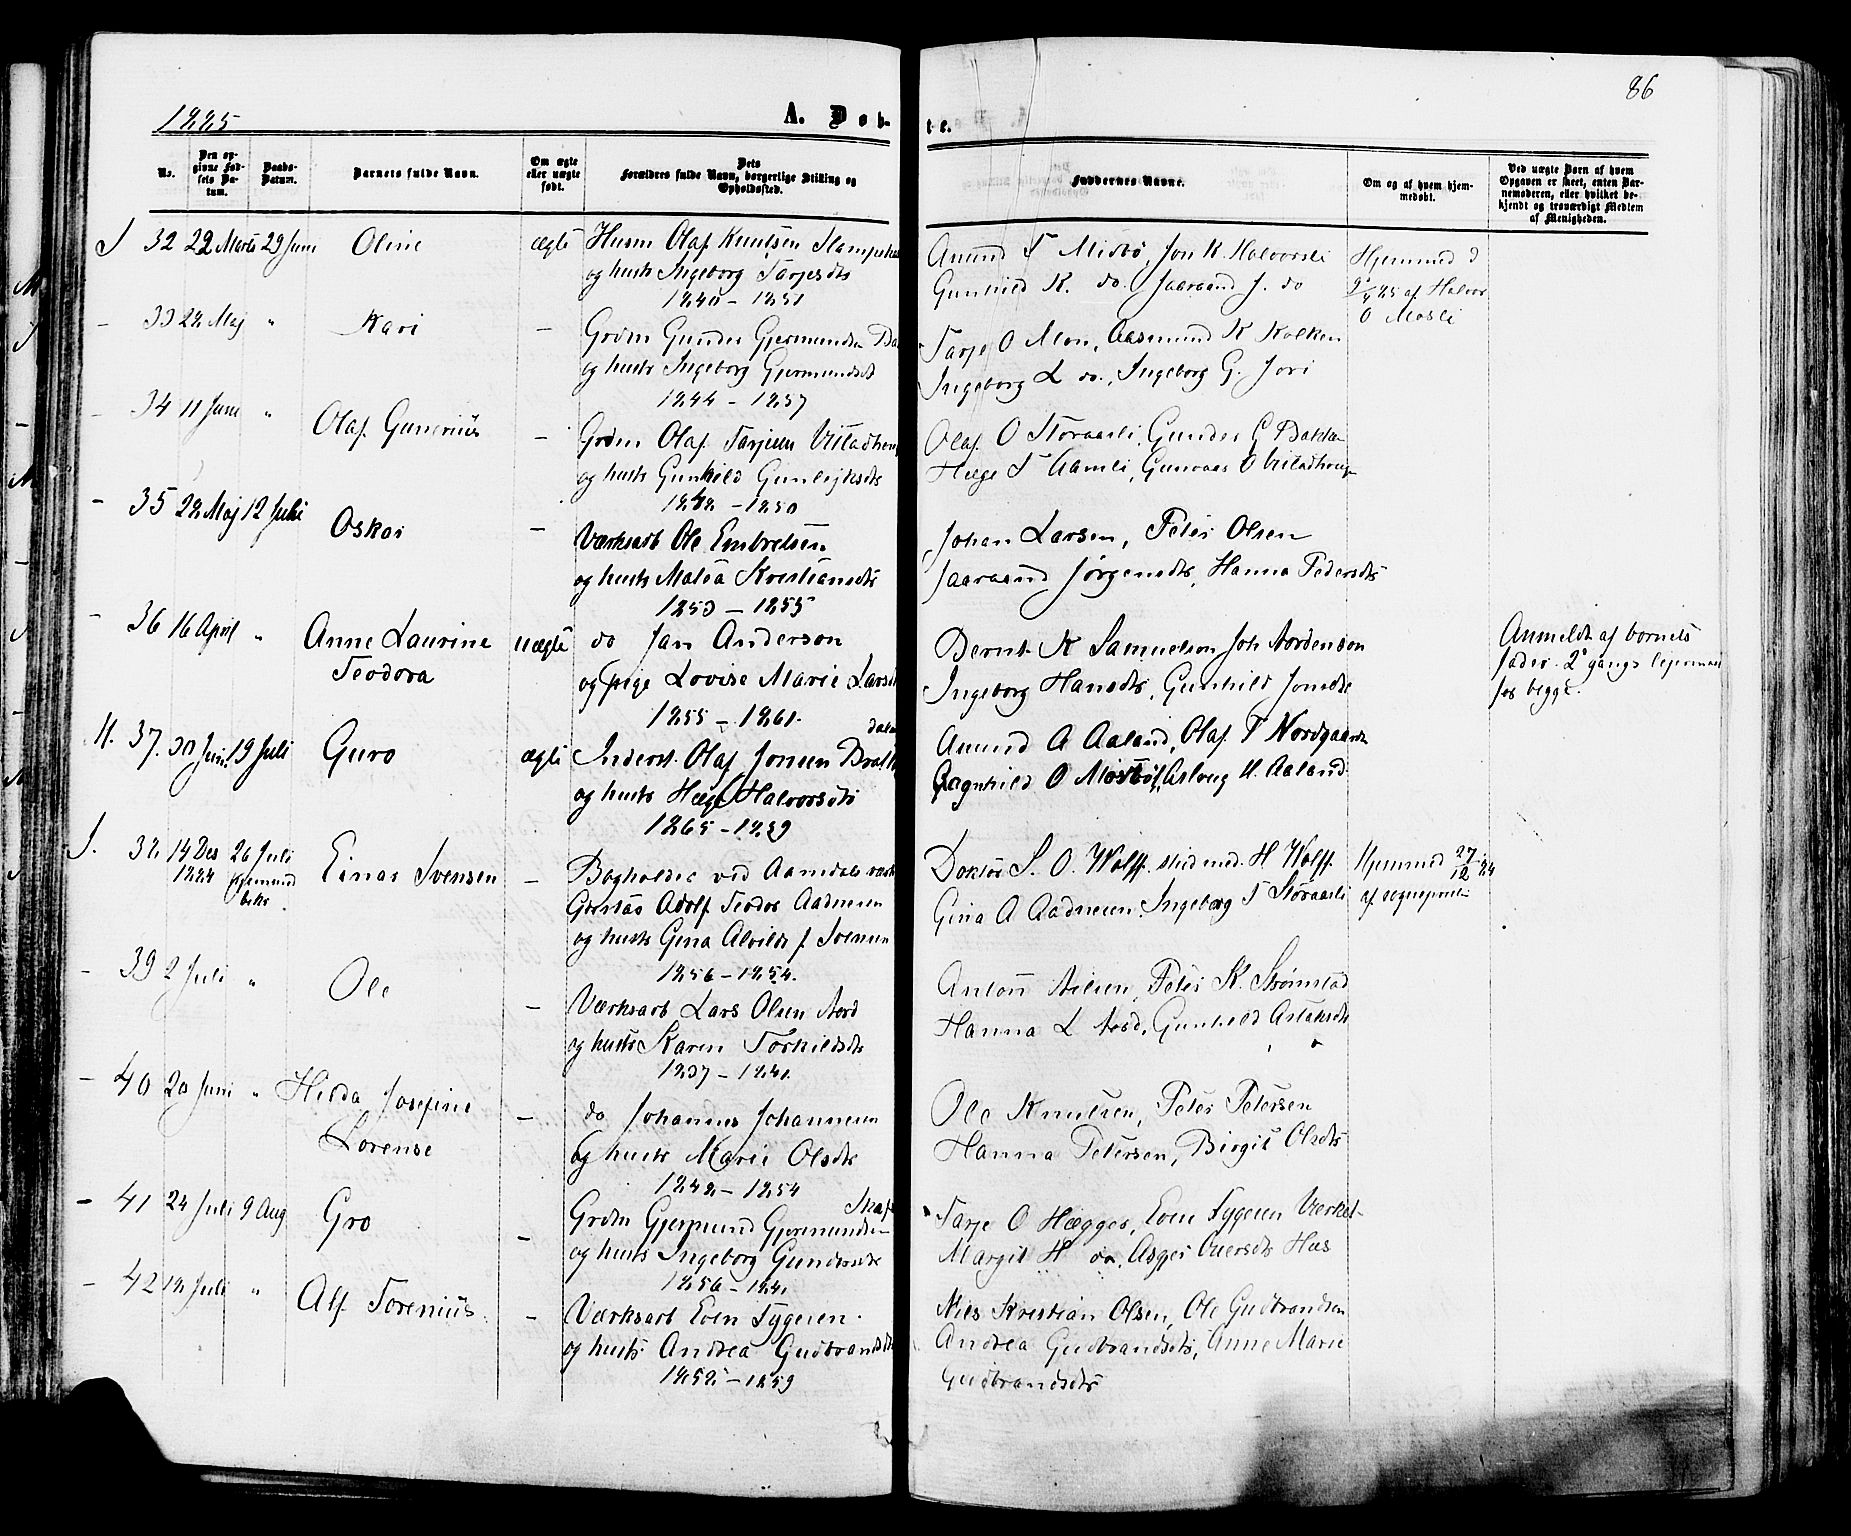 86
1885
A. Døb-
te.
No.
Den op-
givne Fød-
sels Da-
tum.
Daabs-
Datum.
Barnets fulde Navn.
Om ægte
eller uægte
født.
Dets
Forældres fulde Navn, borgerlige Stilling og
Opholdssted.
Faddernes Navne.
Om og af hvem hjem-
medøbt.
Ved uægte Børn af hvem
Opgaven er skeet, enten Bar-
nemoderen, eller hvilket be-
kjendt og troværdigt Medlem
af Menigheden.
32 22 Marts 29 Juni Oline ægte Husm Olaf Knutsen
og hustr Ingeborg Tarjesdtr
1840 - 1851
Amund T Misbø, Jon K. Halvorsli
Gunhild K. do. Jaraand J. do
Hjemmed d
af Halvor
O Mosli
33 28 Maj " Kari - Grdm Gunder Gjermundsen
og hustr Ingeborg Gjermundsdt
1844 - 1857
Tarje O Moen, Aasmund K Kolken
Ingeborg L do., Ingeborg G. Jori
34 11 Juni " Olaf Gunerius - Grdm Olaf Tarjesen
og hustr Gunhild Gunleiksdtr
1848 - 1850
Olaf O Storaasli, Gunder G Bakken
Hæge T Aamli, Gunvaar O
35 28 Maj 12 Juli Oskar - Værksarb Ole Embretsen
og hustr Matea Kristiansdtr
1853 - 1855
Johan Larsen, Peter Olsen
Jaaraand Jørgensdtr, Hanna Pedersdtr
36 16 April " Anne Laurine
Teodora
uægte do Jan Anderson
og pige Lovise Marie Larsdt
1855 - 1861.
Bernt K Samuelson Joh Nordenson
Ingeborg Hansdtr, Gunhild Jonsdtr
Anmeldt af barnets
fader. 2 gangs lejermaal
for begge.
M. 37. 30 Juni 19 Juli Guro ægte Inderst. Olaf Jonsen
og hustr Hæge Halvorsdtr
1865 - 1859
Amund A Aaland, Olaf T Nordgaarden
Ragnhild O Mosbø, Aslaug H. Aaland
38 14 Des 26 Juli
1884
Einar Svensen - Bogholder ved Aamdals værk
Gustav Adolf Teodor Aadnesen
og hustr Gina Alvilde f Svensen
1856 - 1854.
Doktor S. O. Wolff stud med. H Wolff
Gina A Aadnesen, Ingeborg T Storaasli
Hjemmed 27/12 84
af sognepresten
39 2 Juli " Ole - Værksarb Lars Olsen Nord
og hustr Karen Torkildsdtr
1837 - 1841.
Anton Nilsen, Peter K. Strømstad
Hanna L Nord, Gunhild Aslaksdtr
40 20 Juni " Hilda Josefine
Lorense
- do Johannes Johannesen
og hustr Marie Olsdtr
1848 - 1854
Ole Knutsen, Peter Petersen
Hanna Petersen, Birgit Olsdtr
41 24 Juli 9 Aug Gro - Grdm Gjermund Gjermundsen
og hustr Ingeborg Gundersdtr
1856 - 1841
Tarje O Hægges, Even Tygesen Værket
Margit H do, Asger
42 18 Juli " Alf Torenius - Værksarb Even Tygesen
og hustr Andrea Gudbrandsdtr
1858 - 1859
Nils Kristian Olsen, Ole Gudbrandsen
Andrea Gudbrandsdtr, Anne Marie
Gudbrandsdtr